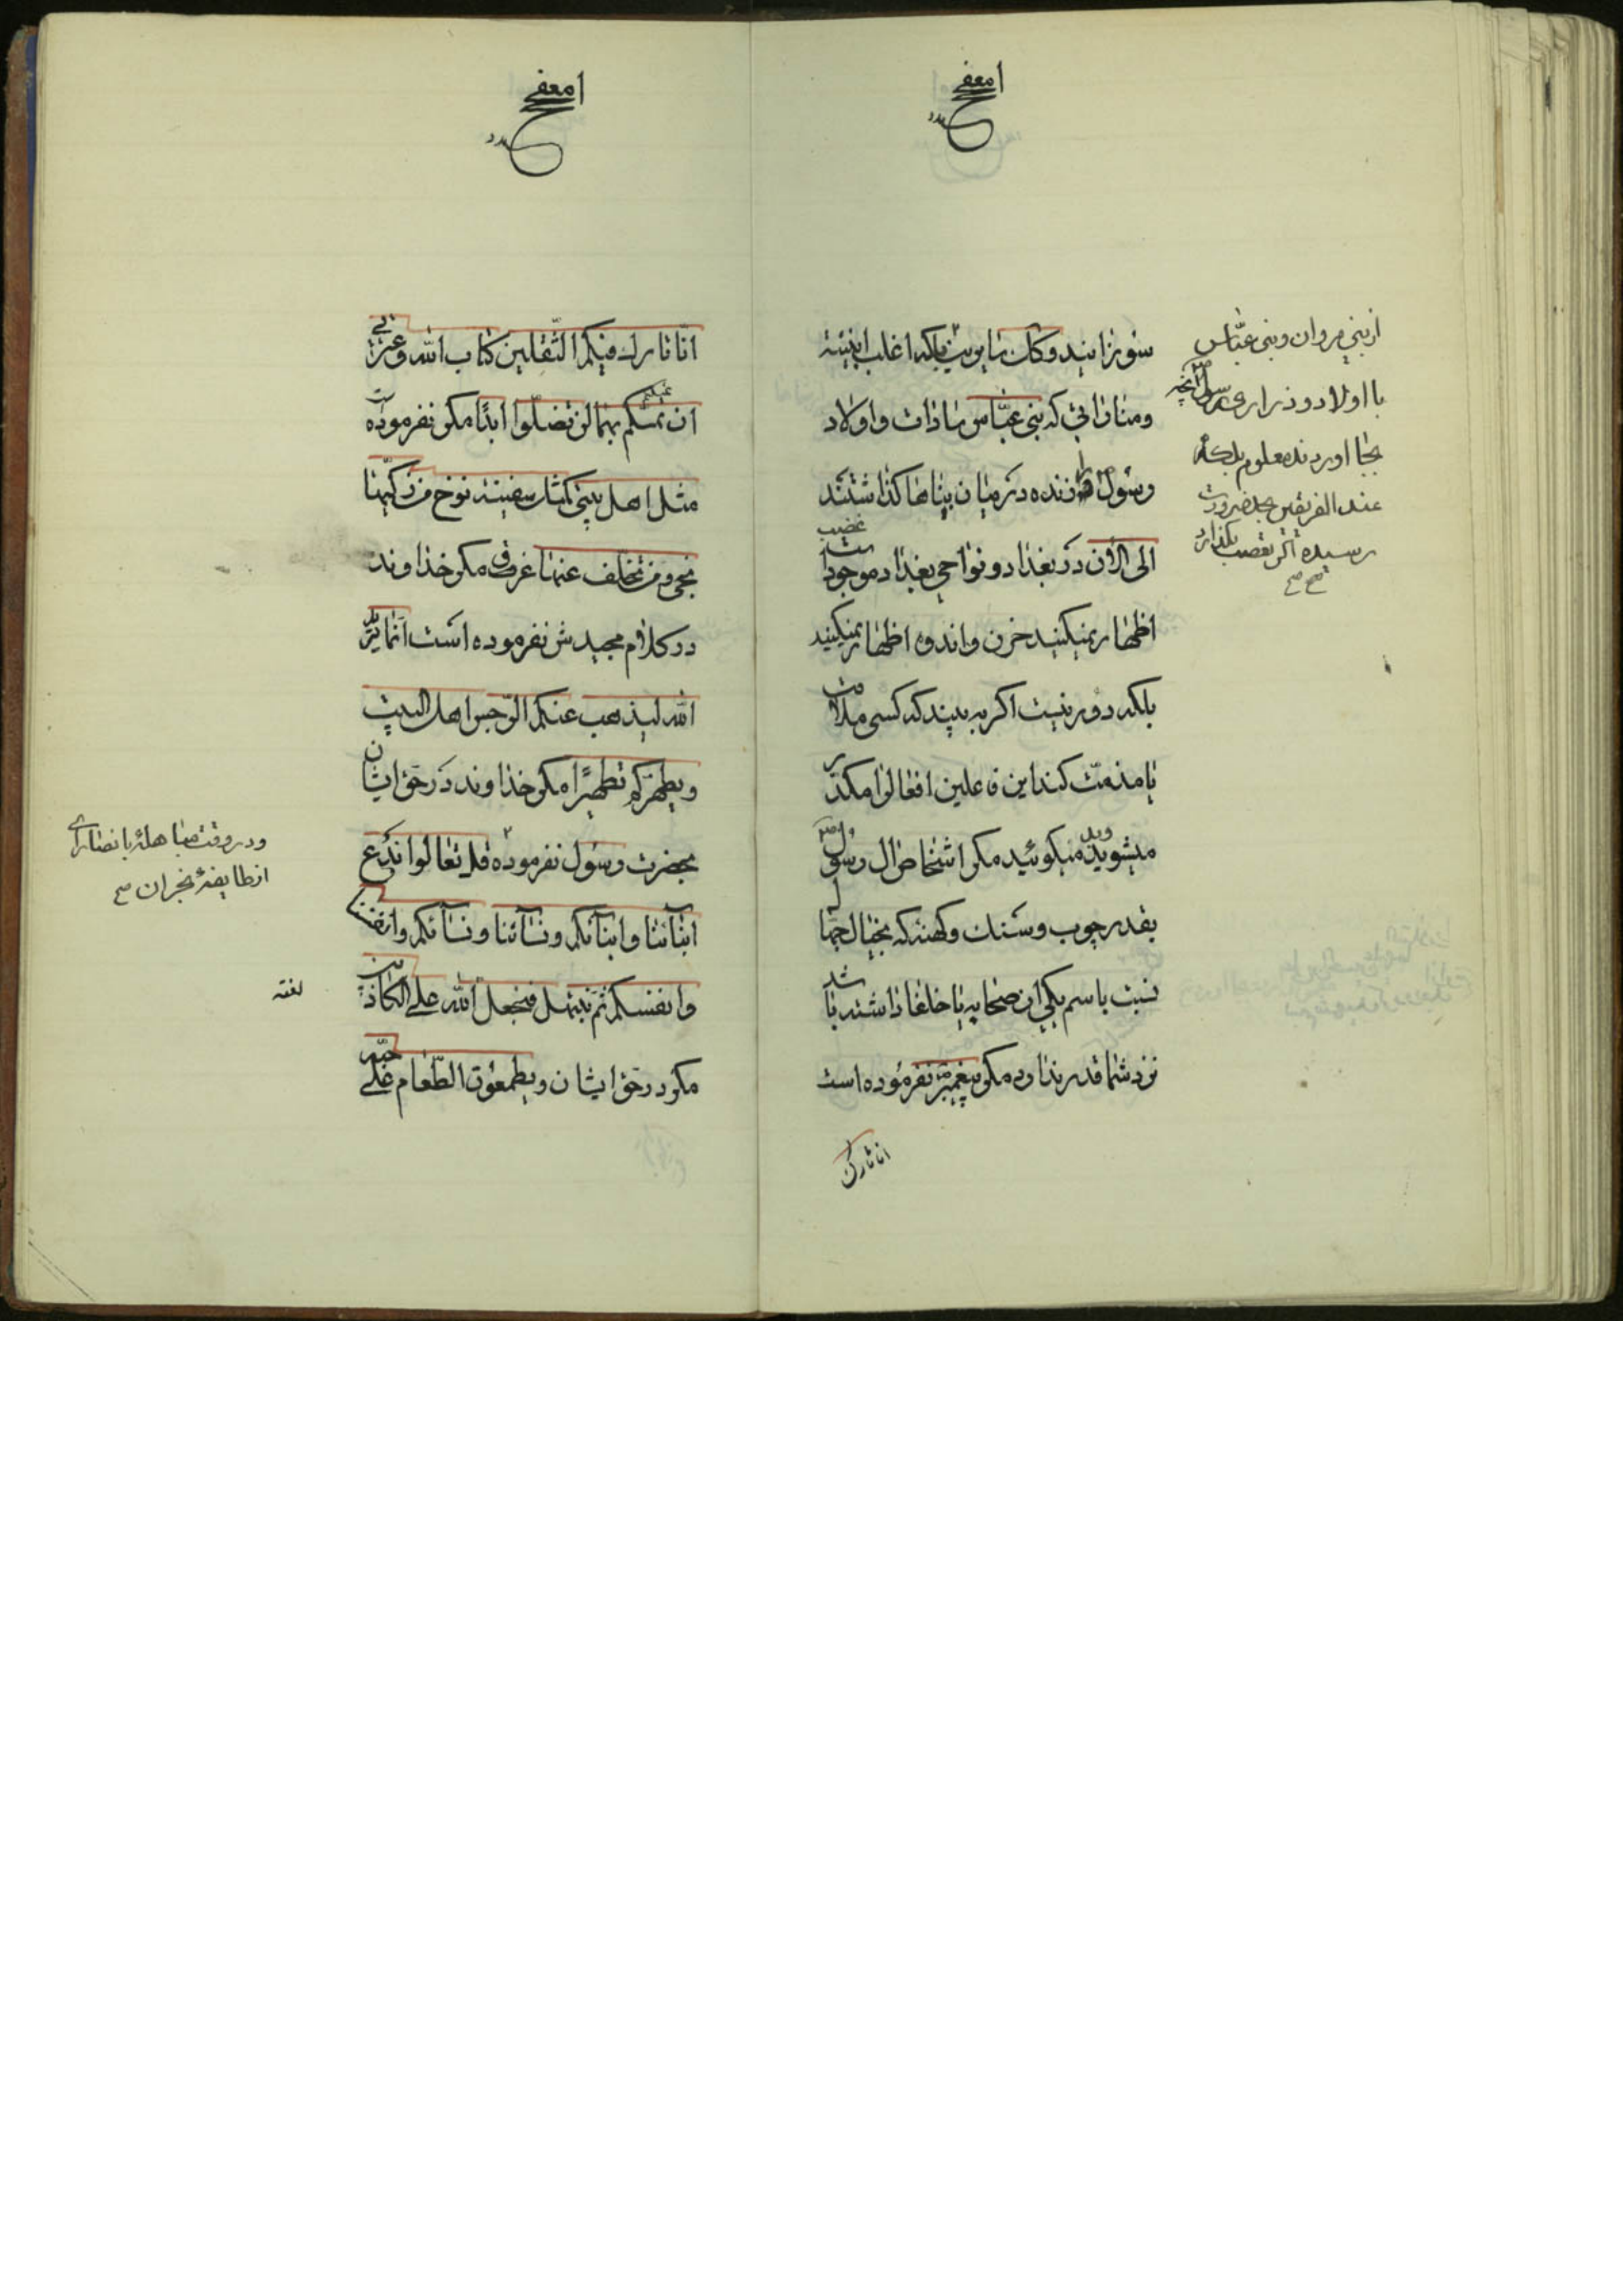 سوزانید و کان
بلکه اغلب ابنیه
و مناراتی که بنی عباس سادات و اولاد
رسول را زنده در میان بناها گذاشتند
الی الآن در بغداد و نواحی بغداد موجود است
اظهار نمیکنید حزن و اندوه اظهار نمیکنید
بلکه دور نیست اگر به بیند که کسی ملامت
یا مذمت کند این فاعلین افعال را مکدر
میشوید میگوئید مگر اشخاص ال رسول
بقدر چوب و سنک و کهنه که بخیال جهال
نسبت باسم یکی از صحابه یا خلفا داشته باشد
نزد شما قدر ندارد مگر پیغمبر نفرموده است
انا تارک
از بنی مروان و بنی عباس
با اولاد و ذراری رسول
بجا اوردند معلوم بلکه
عند الفریقین بحد ضرورت
رسیده اگر تعصب بگذارد
انا تارک فیکم الثقلین کتاب الله و عترتی
ان تمسکتم بهما لن تضلوا ابدا مگر نفرموده است
مثل اهل بیتی کمثل سفینة نوح من رکبها
نجی و من تخلف عنها غرق مگر خداوند
در کلام مجیدش نفرموده است انما یرید
الله لیذهب عنکم الرجس اهل البیت
و یطهرکم تطهیرا مگر خداوند در حق ایشان
بحضرت رسول نفرموده قل تعالوا ندع
ابنائنا و ابنائکم و نسائنا و نسائکم و انفسنا
و انفسکم ثم نبتهل فنجعل لعنة الله علی الکاذبین
مگر در حق ایشان و یطعمون الطعام علی حبه
و در وقت مباهله با نصارای
از طایفه نجران صح